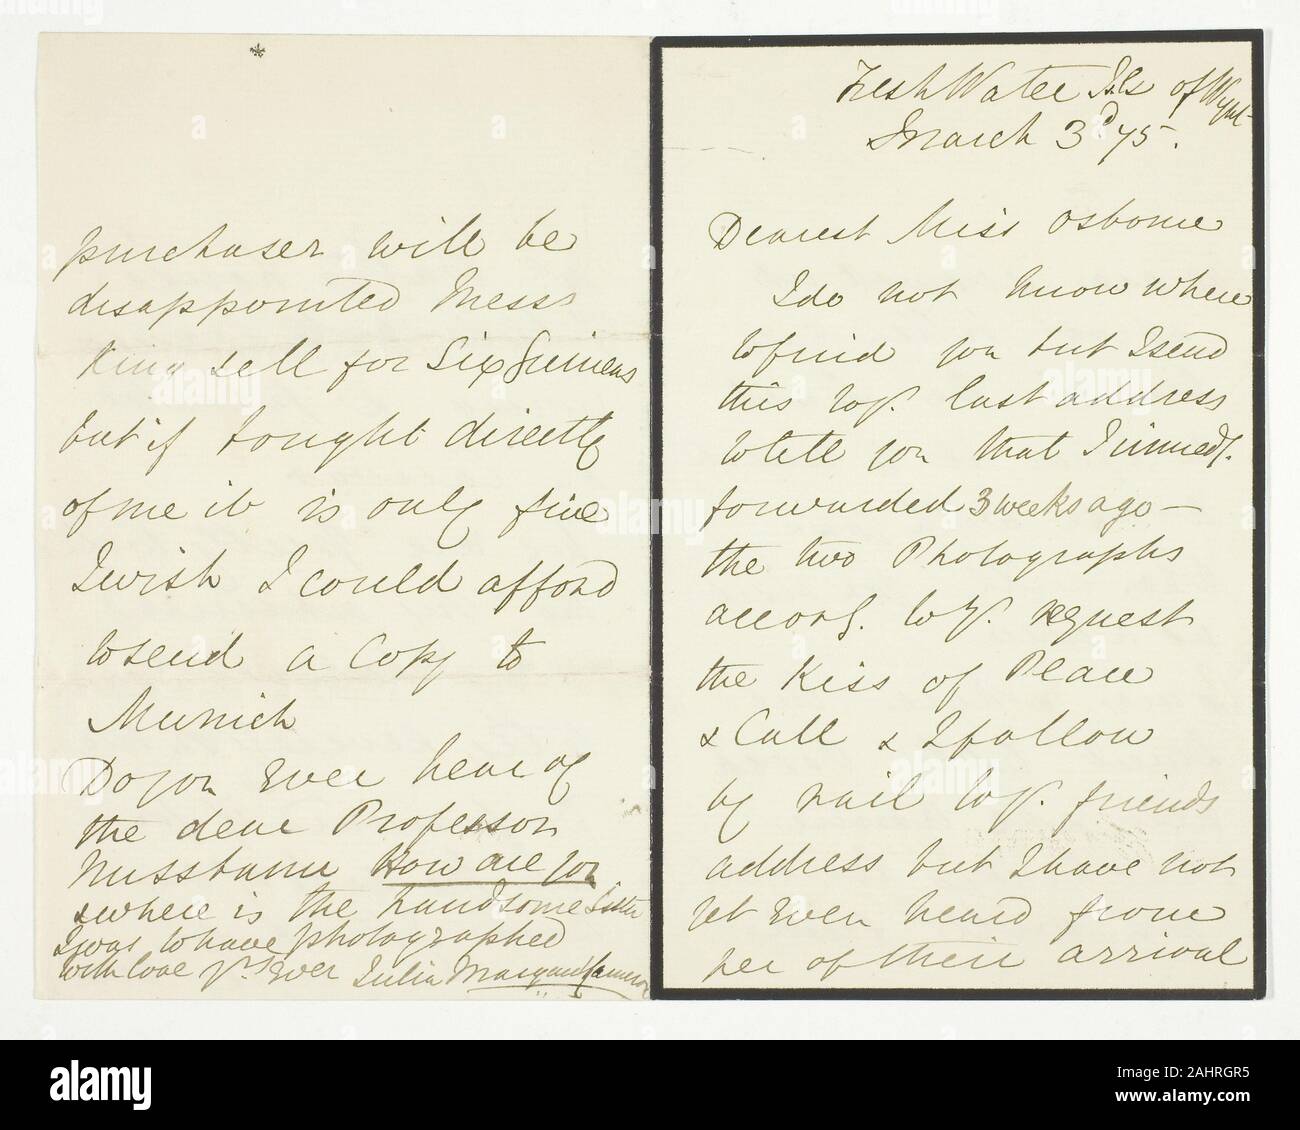 Fresh Water Isle of Wight
March 3d 75.
Dearest Miss Osborne
I do not know where
to find you but I send
this to yr. last address
to tell you that I immedy.
forwarded 3 weeks ago —
the two Photographs
accorg. to yr. request
the Kiss of Peace
& Call & I follow
by rail to yr. friends
address but I have not
yet even heard from
her of their arrival
*
purchaser will be
disappointed Messs
King sell for Six Guineas
but if bought directly
of me it is only five
I wish I could afford
to send a Copy to
Munich
Do you Ever hear of
the dear Professor
How are you
& where is the handsome Sister
I was to have photographed
with love yrs. Ever Julia Margaret Cameron
alamy
a
alamy
Image ID: 2AHRGR5
www.alamy.com